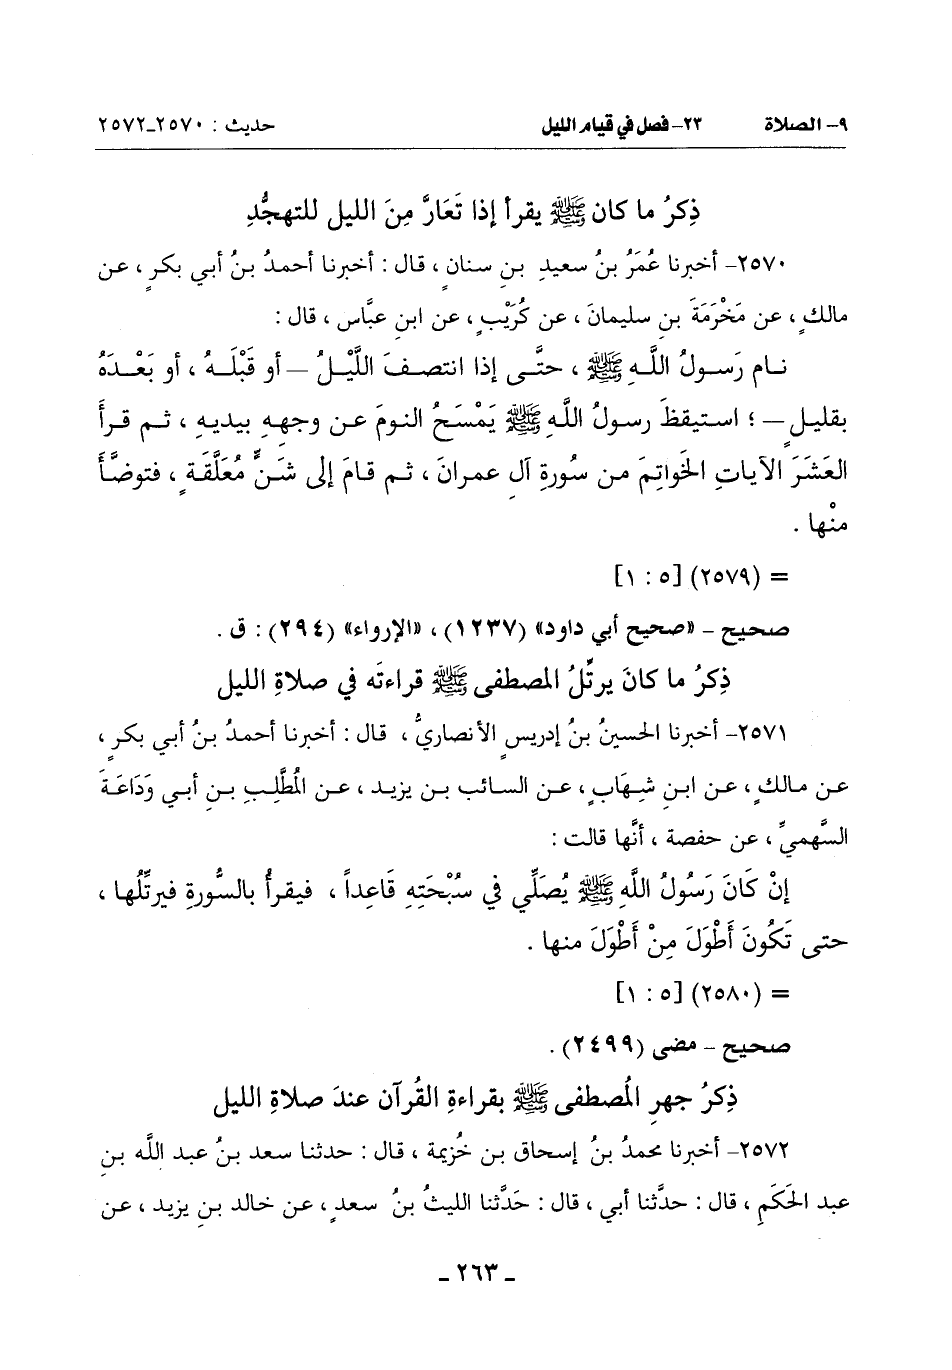 ٩- الصلاة ٢٣- فصل في قيام الليل حديث : ٢٥٧٠-٢٥٧٢
ذِكرُ ما كان ﷺ يقرأ إذا تَعَارَّ مِنَ الليل للتهجُّدِ
٢٥٧٠- أخبرنا عُمَرُ بنُ سعيدِ بنِ سنانٍ ، قال : أخبرنا أحمدُ بنُ أبي بكرٍ ، عن
مالكٍ ، عن مَخْرَمَةَ بنِ سليمانَ ، عن كُرَيْبٍ ، عن ابنِ عبَّاس ، قال :
نـام رَسـولُ اللَّـهِ ﷺ ، حتَّـى إذا انتصـفَ اللَّيْـلُ — أو قَبْلَـهُ ، أو بَعْـدَهُ
بقليلٍ — ؛ استيقظَ رسولُ اللَّهِ ﷺ يَمْسَحُ النومَ عن وجهِهِ بيديهِ ، ثم قرأَ
العَشَرَ الآياتِ الخَواتِمَ من سُورةِ آلِ عمرانَ ، ثم قامَ إلى شَنٍّ مُعَلَّقَةٍ ، فتوضَّأَ
منْها .
= (٢٥٧٩) [٥ : ١]
صحيح - «صحيح أبي داود» (١٢٣٧) ، «الإرواء» (٢٩٤) : ق .
ذِكرُ ما كانَ يرتِّلُ المصطفى ﷺ قراءتَه في صلاةِ الليل
٢٥٧١- أخبرنا الحسينُ بنُ إدريسٍ الأنصاريُّ ، قال : أخبرنا أحمدُ بنُ أبي بكرٍ ،
عن مالكٍ ، عن ابنِ شِهَابٍ ، عن السائب بن يزيد ، عن المُطَّلِبِ بنِ أبي وَدَاعَةَ
السَّهميِّ ، عن حفصة ، أنَّها قالت :
إنْ كَانَ رَسُولُ اللَّهِ ﷺ يُصَلِّي في سُبْحَتِهِ قَاعِداً ، فيقرأُ بالسُّورةِ فيرتِّلُها ،
حتى تَكُونَ أَطْوَلَ مِنْ أَطْوَلَ منها .
= (٢٥٨٠) [٥ : ١]
صحيح - مضى (٢٤٩٩) .
ذِكرُ جهرِ المُصطفى ﷺ بقراءةِ القُرآن عندَ صلاةِ الليل
٢٥٧٢- أخبرنا محمدُ بنُ إسحاق بن خُزيمة ، قال : حدثنا سعد بنُ عبد اللَّه بنِ
عبد الحَكَمِ ، قال : حدَّثنا أبي ، قال : حَدَّثنا الليثُ بنُ سعدٍ ، عن خالد بنِ يزيد ، عن
- ٢٦٣ -